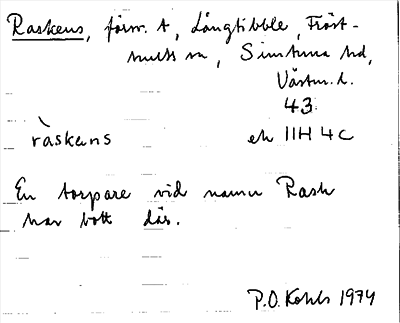 Raskens, förr. t, Långtibble, Fröst-
hults sn, Simtuna hd,
Västm. l.
43.
ràskens ek 11H 4c
En torpare vid namn Rask
har bott där.
P.O. Kohls 1974